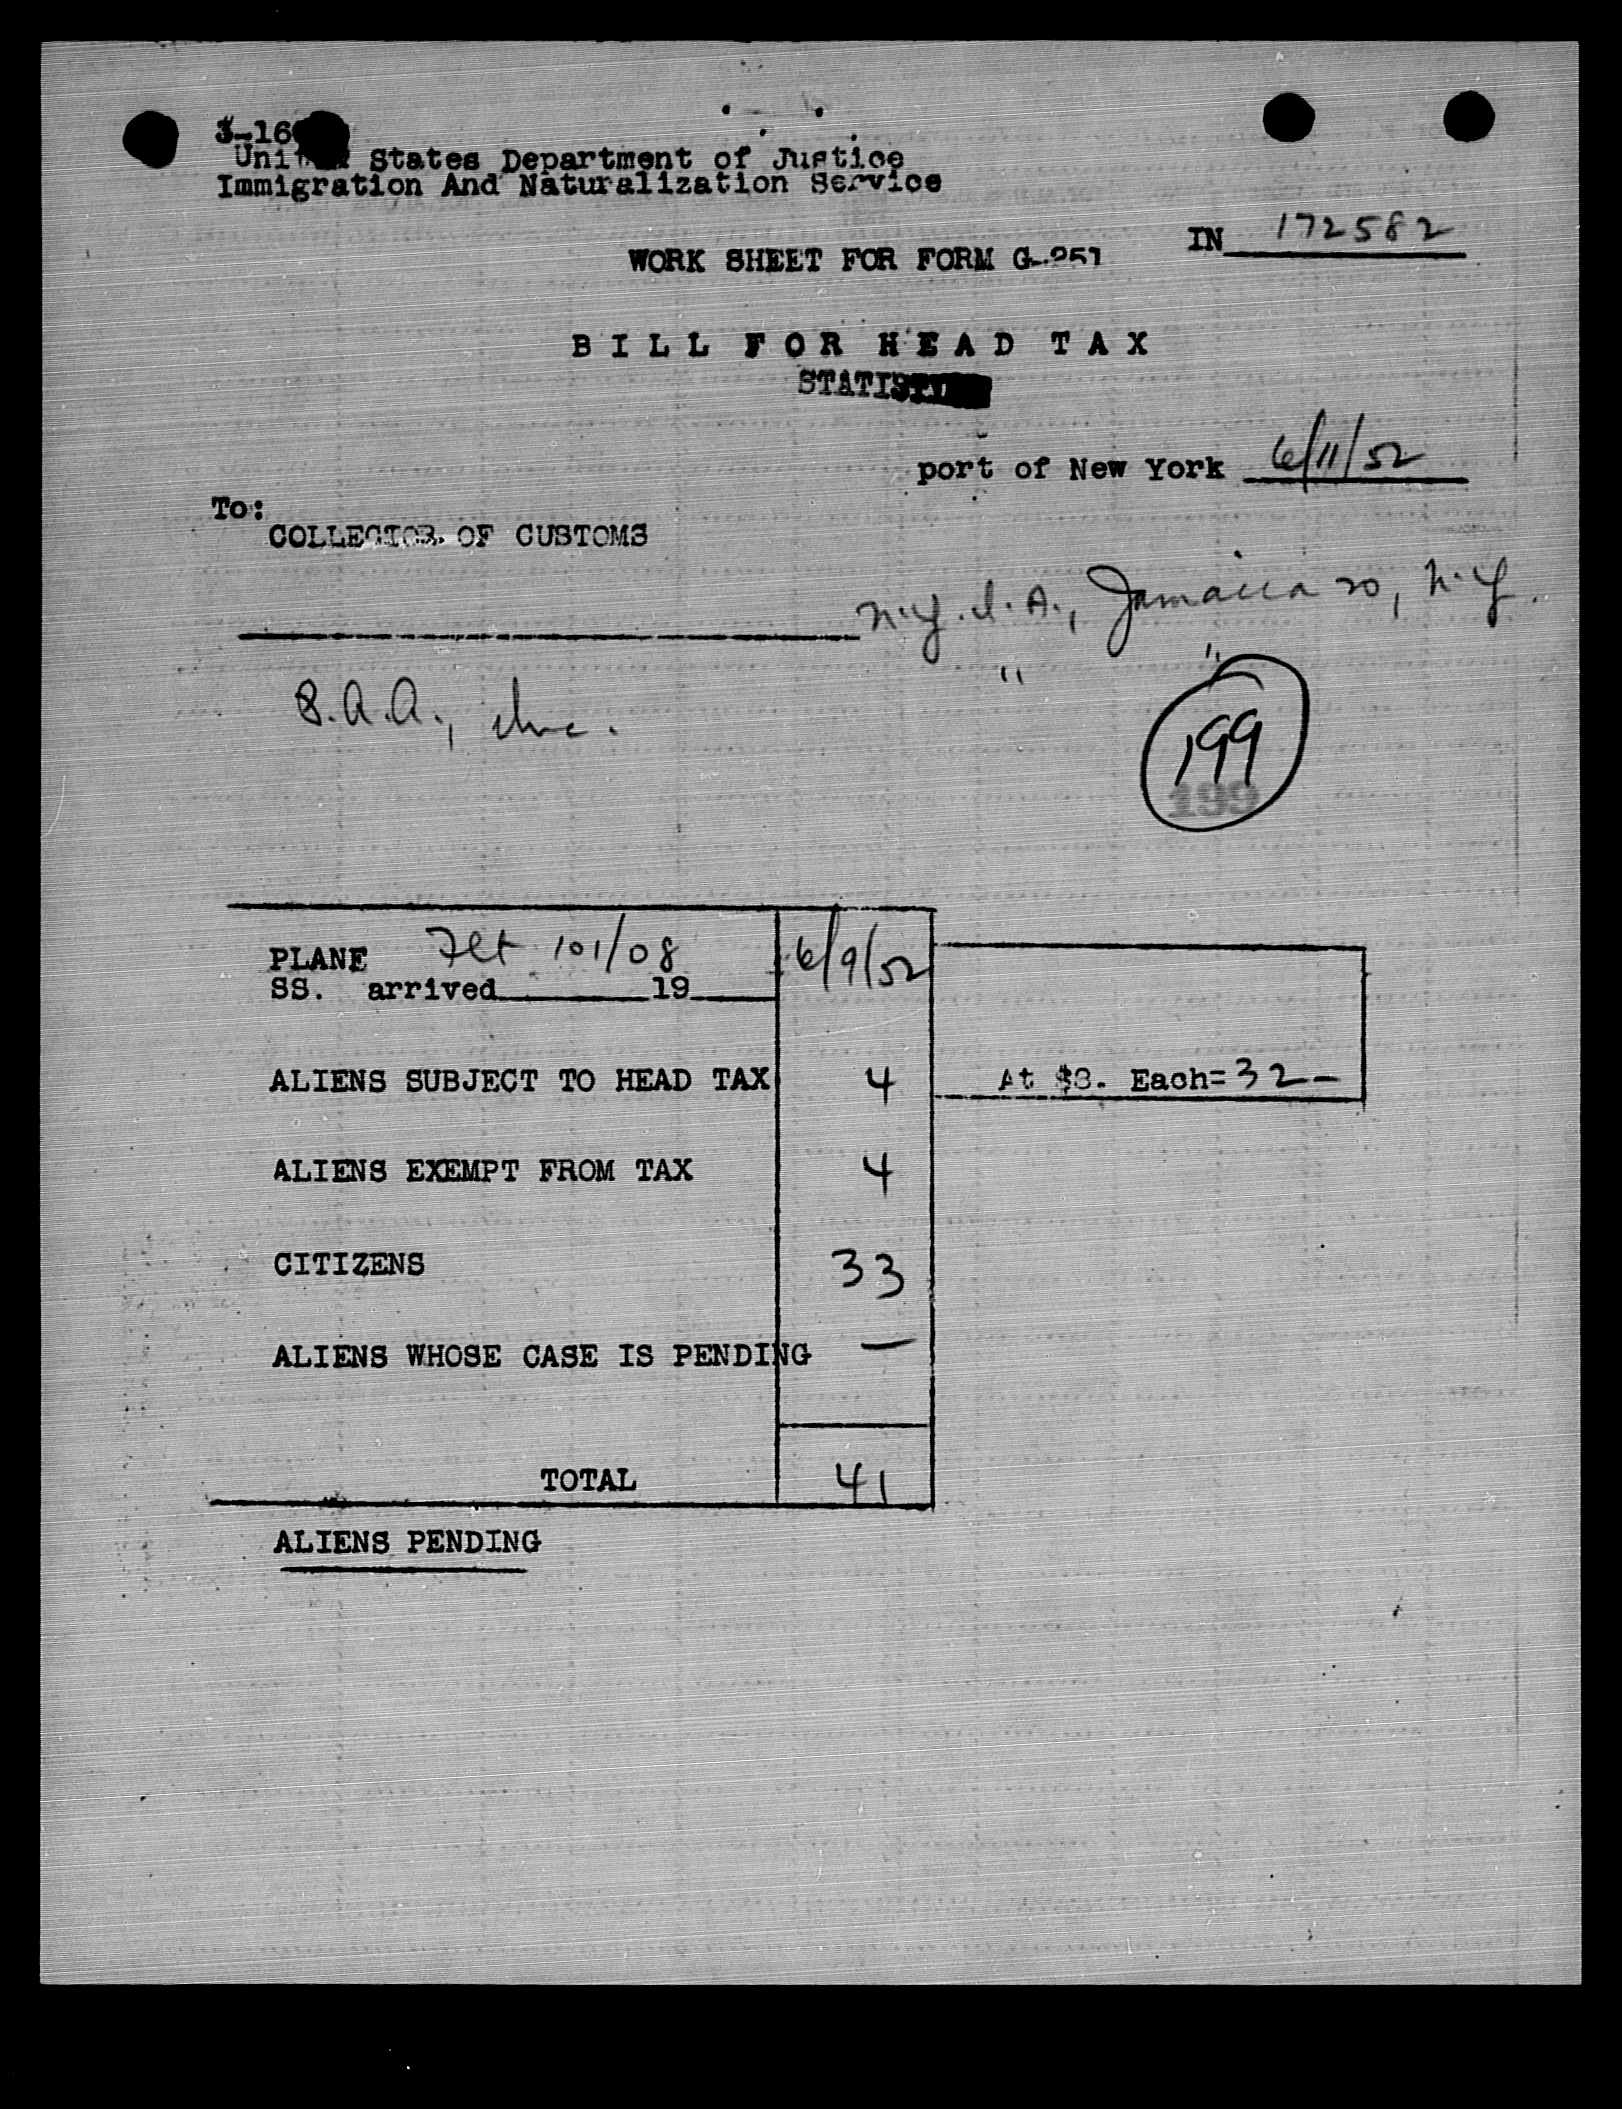 3-16
United States Department of Justice
Immigration And Naturalization Service
IN 172582
WORK SHEET FOR FORM G-251
BILL FOR HEAD TAX
port of New York 6/11/52
To:
COLLECTOR OF CUSTOMS
N.Y.I.A., Jamaica 20, N.Y.
" "
S.A.A., Inc.
199
199
PLANE Flt 101/08 6/9/52
SS. arrived 19
ALIENS SUBJECT TO HEAD TAX 4 At $8. Each=32-
ALIENS EXEMPT FROM TAX 4
CITIZENS 33
ALIENS WHOSE CASE IS PENDING —
TOTAL 41
ALIENS PENDING